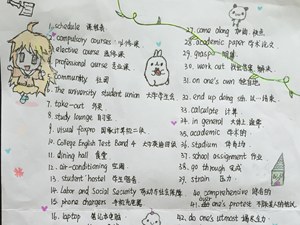 1. schedule 课程表
compulsory courses 必修课
elective course 选修课
professional course 专业课
5. community 社团
6. the university student union 大学学生会
7. take-out 外卖
8. study lounge 自习室
9. visual foxpro
10. College English Test Band 4 大学英语四级
11. dining hall 食堂
12. air-conditioning 空调
13. student hostel 学生宿舍
14. Labor and Social Security 劳动与社会保障
15. phone chargers 手机充电器
16. laptop 笔记本电脑
27. come along 加油,快点
28. academic paper 学术论文
29. grasp
30. work out 解决
31. on one's own 独自地
32. end up doing sth. 以…结束
33. calculate 计算
34. in general 大体上
35. academic 学术的
36. stadium 体育场
37. school assignment 作业
38. go through 完成
39. strain 压力
40. comprehensive
41. do one's protest
42. do one's utmost 竭尽全力